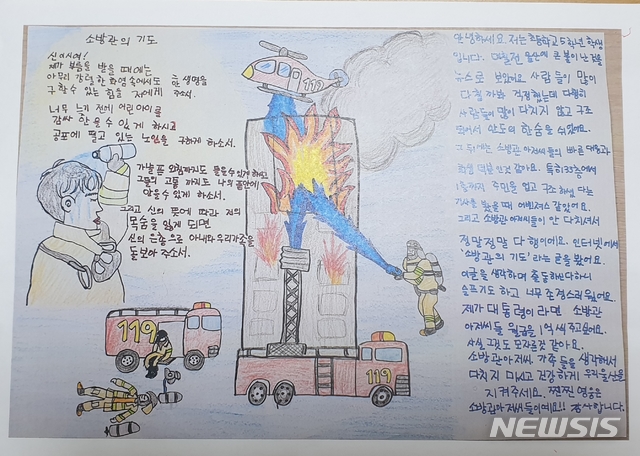 소방관의 기도
신이시여!
제가 부름을 받을 때에는
아무리 강력한 화염 속에서도 한 생명을
구할 수 있는 힘을 저에게 주소서.
너무 늦기 전에 어린아이를
감싸 안을 수 있게 하시고
공포에 떨고 있는 노인을 구하게 하소서.
가냘픈 외침까지도 들을 수 있게 하시고
그들의 고통까지도 나의 품안에
안을 수 있게 하소서.
그리고 신의 뜻에 따라 저의
목숨을 잃게 되면
신의 은총으로 아내와 우리가족을
돌보아 주소서.
119
119
안녕하세요. 저는 초등학교 5학년 학생
입니다. 며칠전 울산에 큰 불이 난 것을
뉴스로 보았어요. 사람들이 많이
다칠까봐 걱정했는데 다행히
사람들이 많이 다치지 않고 구조
되어서 안도의 한숨을 쉬었어요.
그 뒤에는 소방관 아저씨들의 빠른 대응과
덕분인것 같아요. 특히 33층에서
1층까지 주민을 업고 구조하셨다는
기사를 봤을 때 어벤져스 같았어요.
그리고 소방관 아저씨들이 안 다치셔서
정말정말 다행이에요. 인터넷에서
'소방관의 기도'라는 글을 봤어요.
이글을 생각하며 출동하신다하니
슬프기도 하고 너무 존경스러웠어요.
제가 대통령이라면 소방관
아저씨들 월급을 1억씩 주고싶어요.
사실 그것도 모자를것 같아요.
소방관아저씨, 가족들을 생각해서
다치지 마시고 건강하게 우리 울산을
지켜주세요. 찐찐 영웅은
소방관아저씨들이예요!! 감사합니다.
NEWSIS